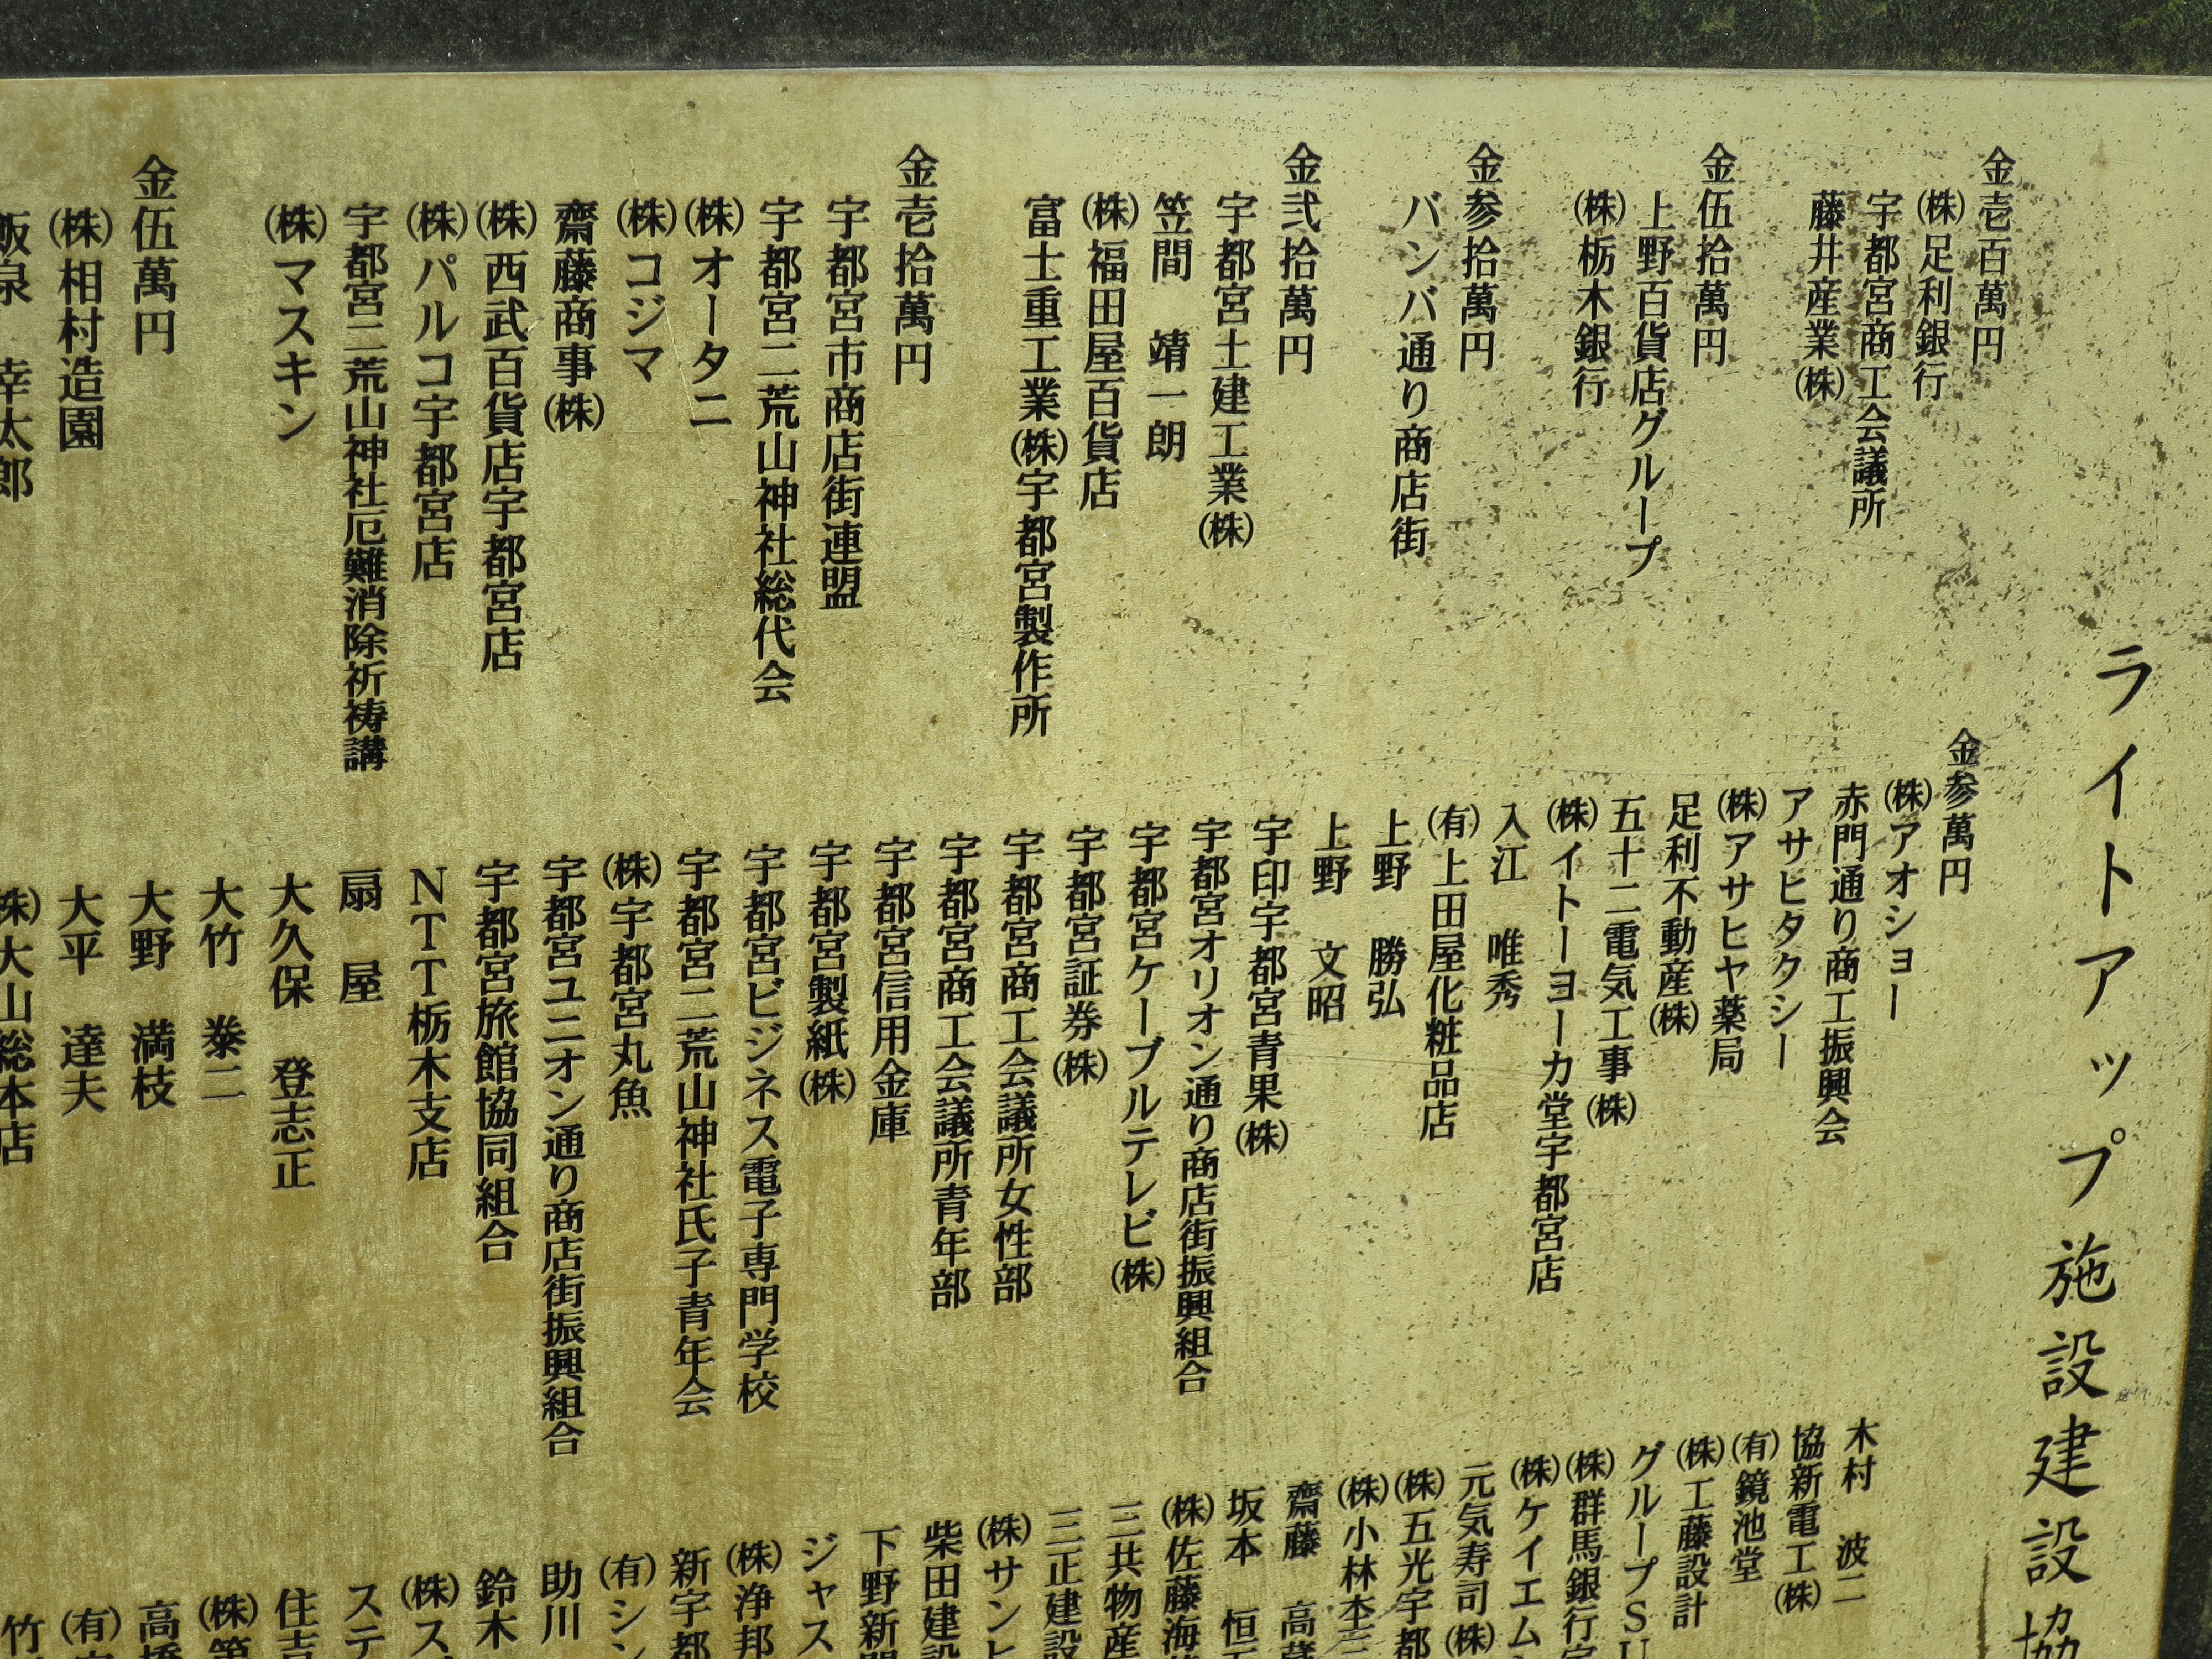 ライトアップ施設建設協
金壱百萬円
(株)足利銀行
宇都宮商工会議所
藤井産業(株)
金伍拾萬円
上野百貨店グループ
(株)栃木銀行
金参拾萬円
バンバ通り商店街
金弐拾萬円
宇都宮土建工業(株)
笠間 靖一朗
(株)福田屋百貨店
富士重工業(株)宇都宮製作所
金壱拾萬円
宇都宮市商店街連盟
宇都宮二荒山神社総代会
(株)オータニ
(株)コジマ
齋藤商事(株)
(株)西武百貨店宇都宮店
(株)パルコ宇都宮店
宇都宮二荒山神社厄難消除祈祷講
(株)マスキン
金伍萬円
(株)相村造園
飯泉 幸太郎
金参萬円
(株)アオショー
赤門通り商工振興会
アサヒタクシー
(株)アサヒヤ薬局
足利不動産(株)
五十二電気工事(株)
(株)イトーヨーカ堂宇都宮店
入江 唯秀
(有)上田屋化粧品店
上野 勝弘
上野 文昭
宇印宇都宮青果(株)
宇都宮オリオン通り商店街振興組合
宇都宮ケーブルテレビ(株)
宇都宮証券(株)
宇都宮商工会議所女性部
宇都宮商工会議所青年部
宇都宮信用金庫
宇都宮製紙(株)
宇都宮ビジネス電子専門学校
宇都宮二荒山神社氏子青年会
(株)宇都宮丸魚
宇都宮ユニオン通り商店街振興組合
宇都宮旅館協同組合
NTT栃木支店
扇屋
大久保 登志正
大竹 泰二
大野 満枝
大平 達夫
(株)大山総本店
木村 波二
協新電工(株)
(有)鏡池堂
(株)工藤設計
グループSU
(株)群馬銀行宇
(株)ケイエム
元気寿司(株)
(株)五光宇都
(株)小林本三
齋藤 高蔵
坂本 恒
(株)佐藤海
三共物産
三正建設
(株)サンヒ
柴田建設
下野新聞
ジャス
(株)浄邦
新宇都
(有)シン
助川
鈴木
(株)ス
ステ
住吉
(株)第
高橋
(有)
竹